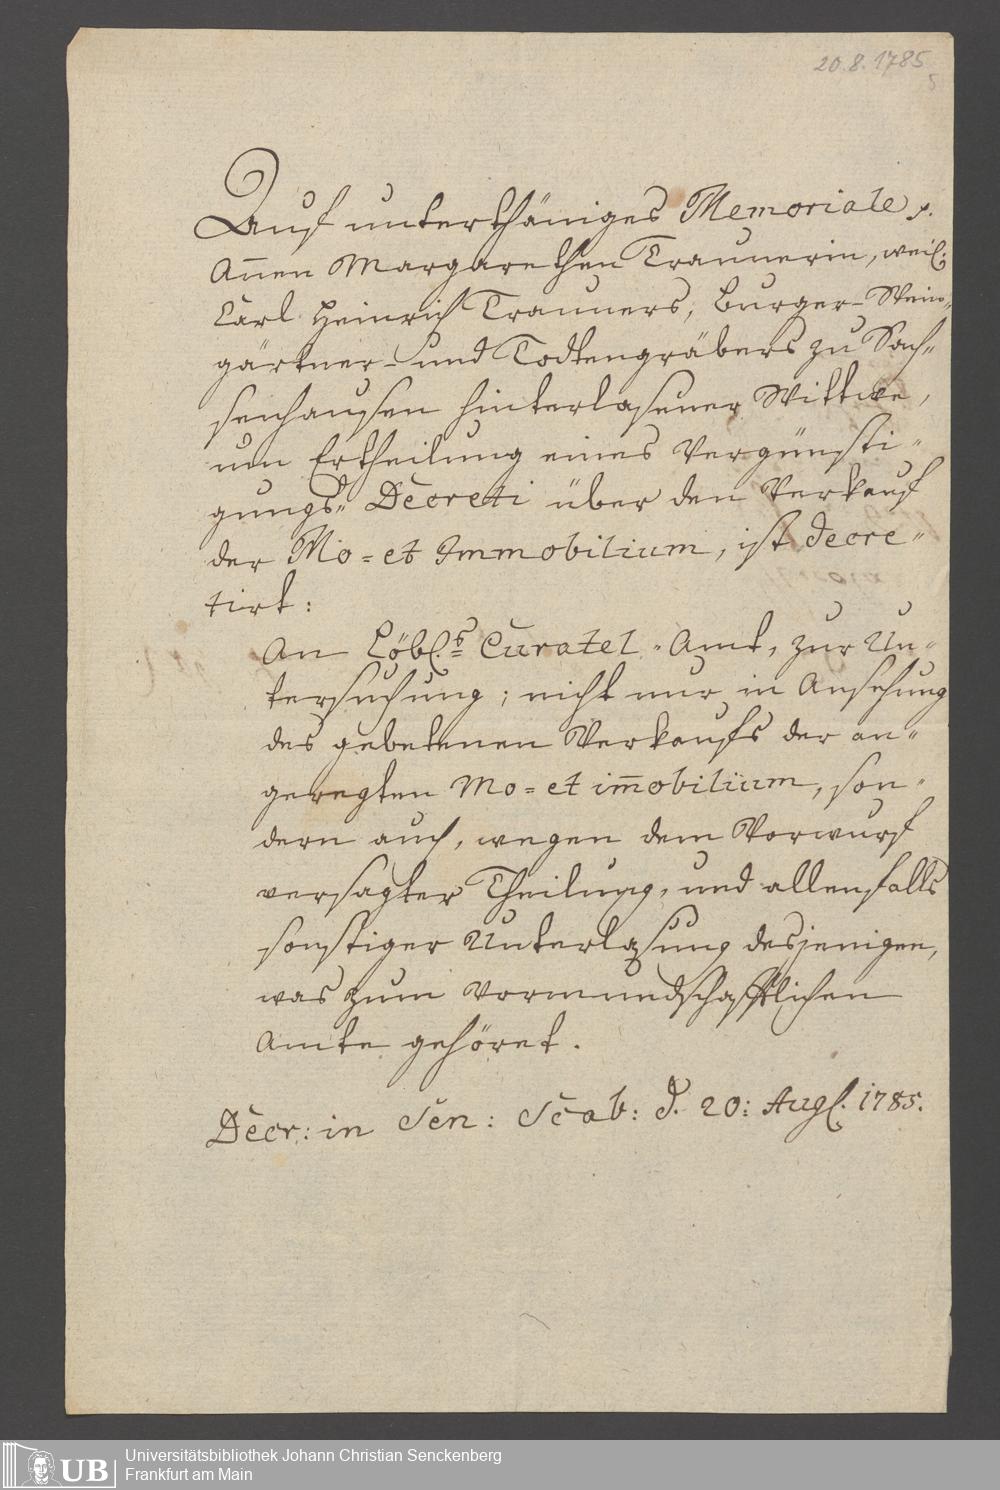 20.8.1785
5
Auf unterthäniges Memoriale s.
Añen Margarethen Traunerin, weil:
Carl Heinrich Trauners, Burger- Wein-
gärtner- und Todtengräbers zu Sach-
senhausen hinterlasener Wittwe,
um Ertheilung eines Vergünsti-
gungs- Decreti über den Verkauf
der Mo= et Immobilium, ist decre-
tirt:
An Löbl.s Curatel-Amt, zur Un-
tersuchung; nicht nur in Ansehung
des gebetenen Verkaufs der an-
geregten Mo= et im̃obilium, son-
dern auch, wegen dem Vorwurf
versagter Theilung, und allenfalls
sonstiger Unterlasung desjenigen,
was zum vormundschafftlichen
Amte gehöret.
Decr: in Sen: Scab: d. 20: Augl. 1785.
UB
Universitätsbibliothek Johann Christian Senckenberg
Frankfurt am Main